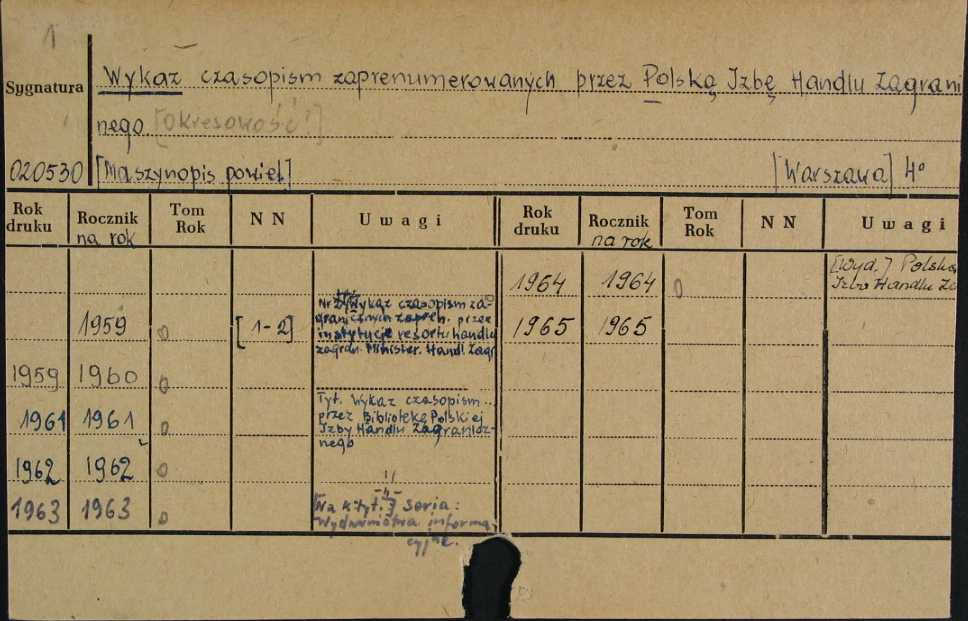 1
Sygnatura
Wykaz czasopism zaprenumerowanych przez Polską Izbę Handlu Zagrani
nego [Okresowość!]
020530 [Maszynopis powiel] [Warszawa] 4°
Rok druku Rocznik na rok Tom Rok N N Uwagi Rok druku Rocznik na rok Tom Rok N N Uwagi
1964 1964 0 [Wyd.] Polska
Izba Handlu Za
1959 0 [1-2] Wykaz czasopism za-
granicznych zapren. przez
instytucje resortu handlu
zagran. Minister. Handl. Zagr
1965 1965
1959 1960 0
1961 1961 0 Tyt. Wykaz czasopism...
przez Bibliotekę Polskiej
Izby Handlu Zagranicz-
nego
1962 1962 0
1963 1963 0 Na k. tyt. Seria:
Wydawnictwa informa-
cyjne.